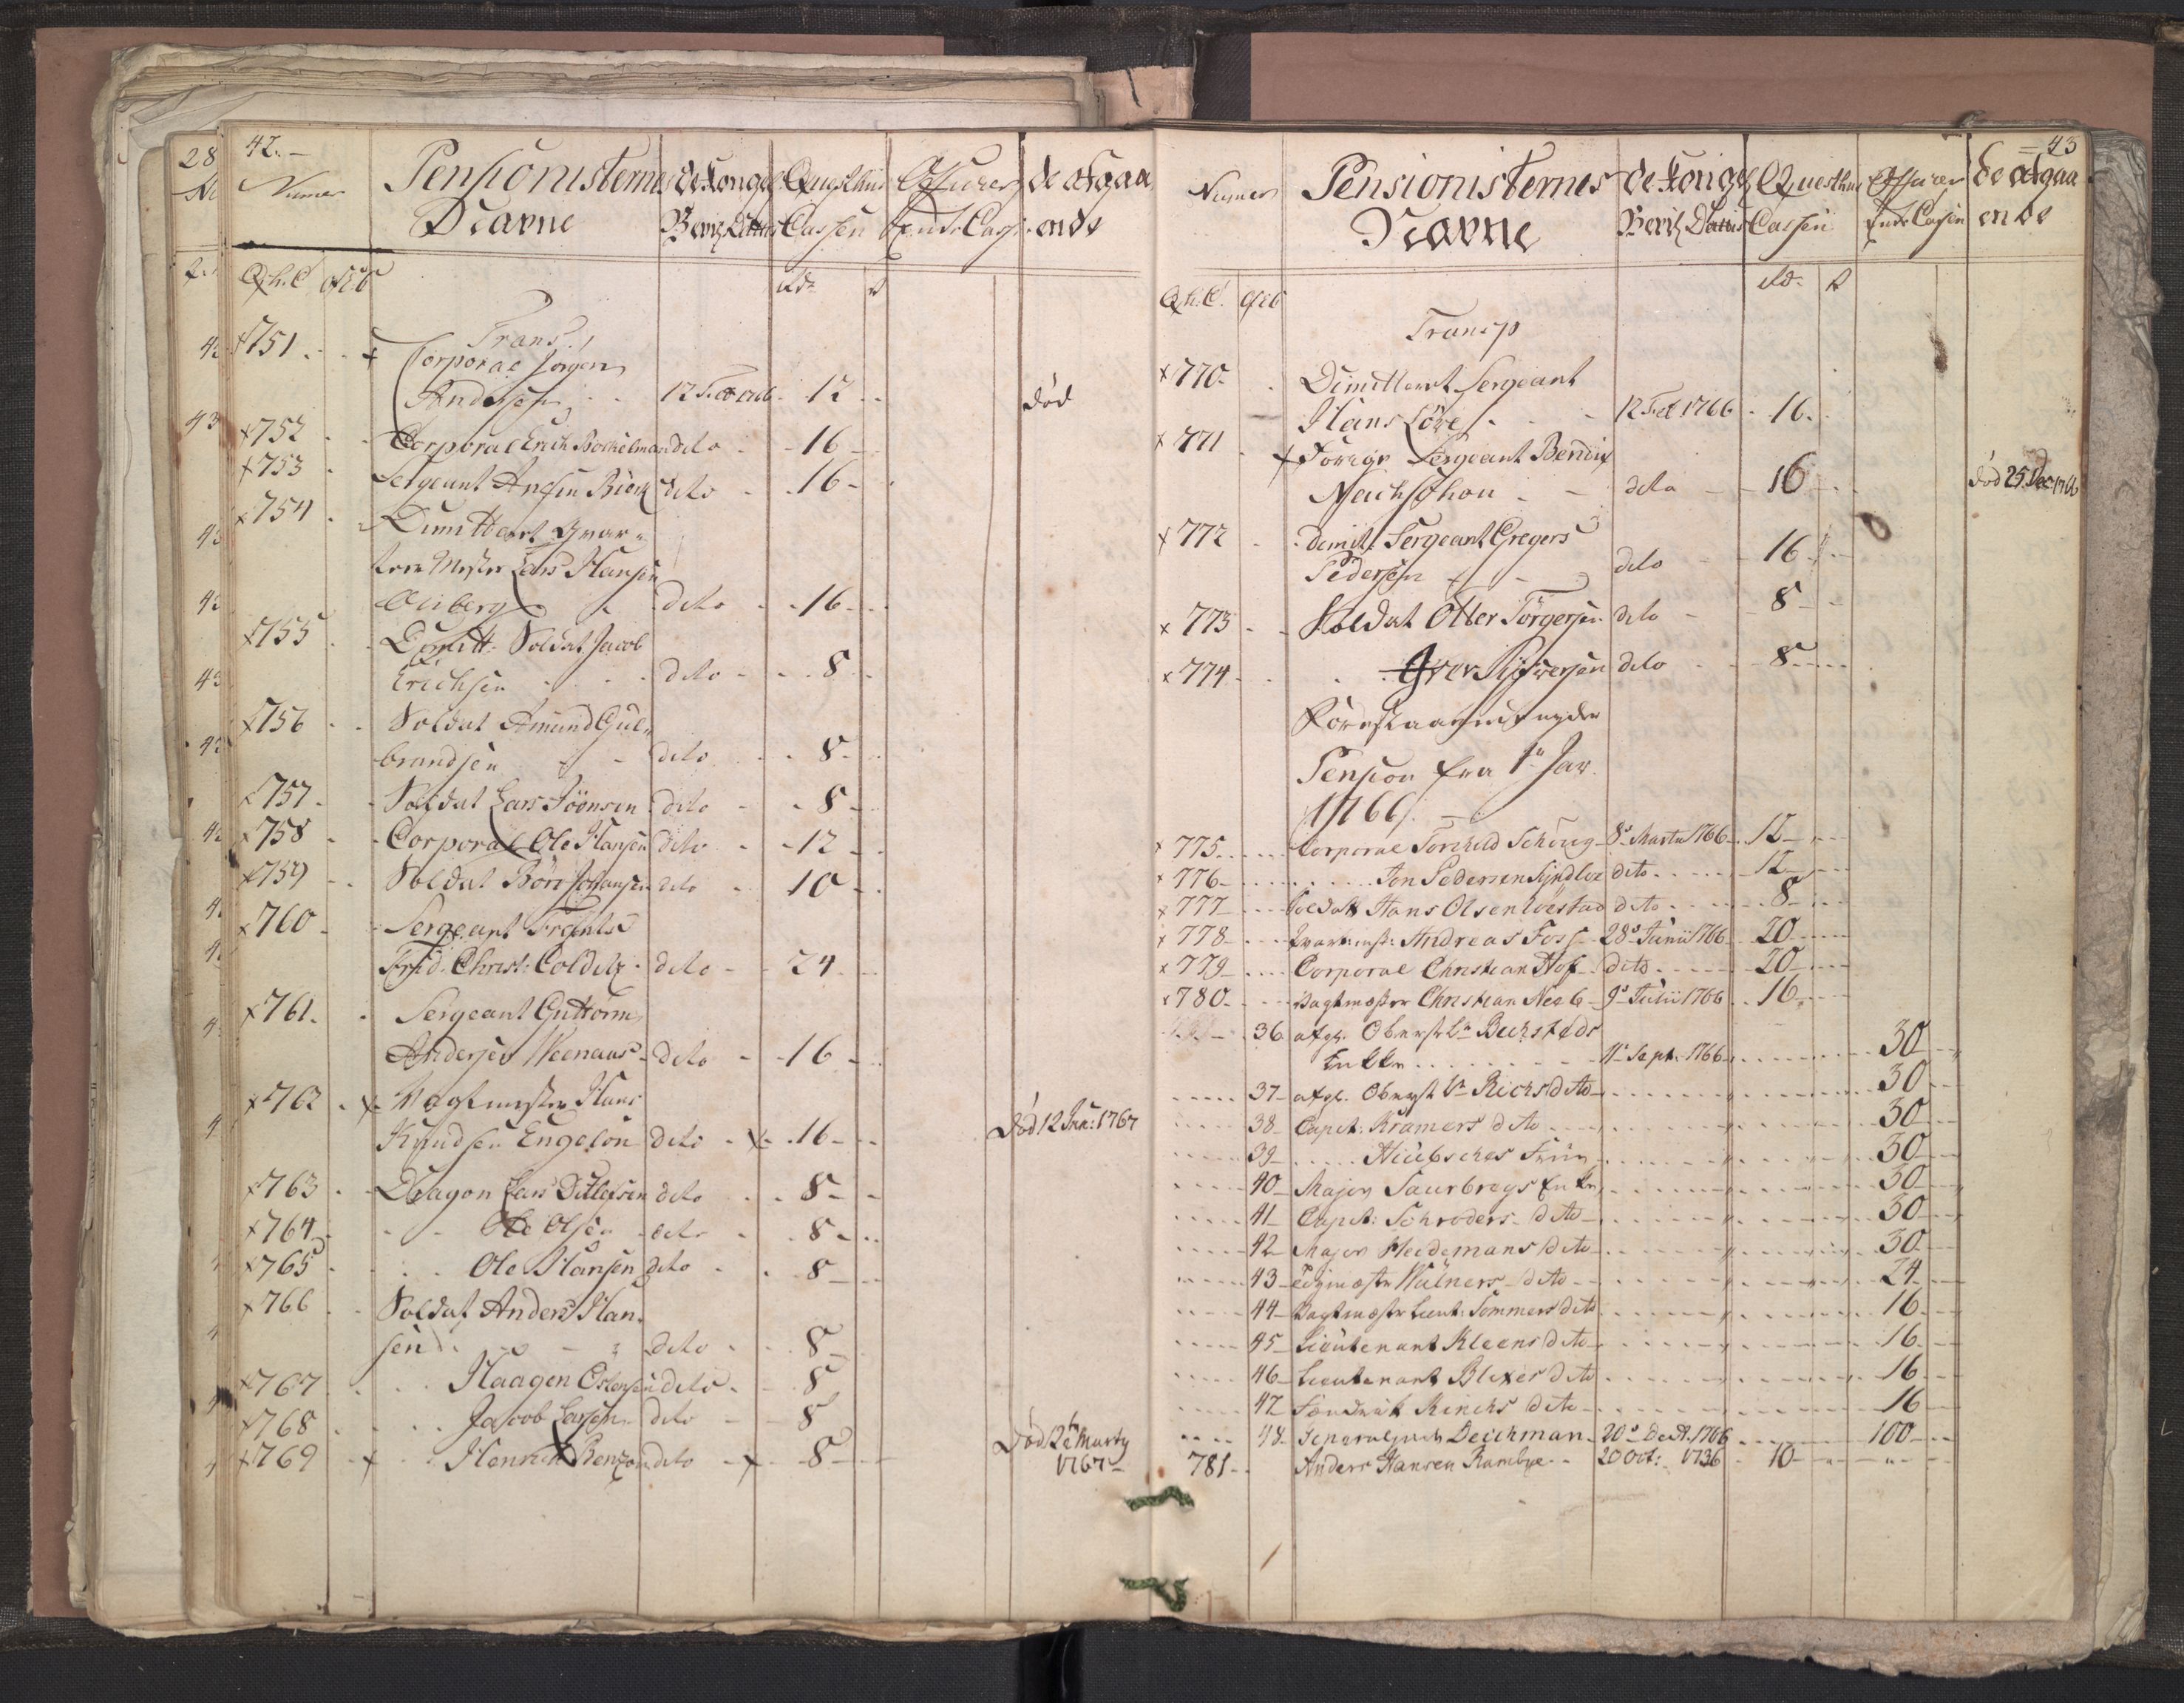 42.
Numer Pensionisternes Navne de Kongel Bevilg Datus Questhus Cassen Officeer Enke Casse de afgaa ende
Q.h.C
Rd
Transp
751 Corporal Jørgen
Andersen 12 12 død
752 Corporal Erich Bockelman dito 16
753 Sergeant Ansen Biørn dito 16
754 Dimittert Qvar
teer Mester Lars Hansen
dito 16
755 Dimitt. Soldat Jacob
Erichsen dito 8
756 Soldat Amund Gul
brandsen dito 8
757 Soldat Lars Jöensen dito 8
758 Corporal Ole Hansen dito 12
759 Soldat Börre Johansen dito 10
760 Sergeant Frants
Frid. Christ: Colditz dito 24
761. Sergeant Guttorm
Andersen Weenaas dito 16
762 Vagtmester Hans
Knudsen Engelön dito 16 Död 12 Jan: 1767
763 Dragon Lars Ditlefsen dito 8
764 Ole Olsen dito 8
765 Ole Hansen dito 8
766 Soldat Anders Han
sen dito 8
767 Haagen Ostensen dito 8
768 Jacob Larsen dito 8
769 Henrich Benzon dito 8 Död 26 Marty
1767
43
Numer Pensionisternes Navne de Kongel Bevilg Datus Questhus Cassen Officeer Enke Casse de afgaa ende
Q.h.C.
Rd
Transp
770 Dimittert Sergeant
Hans Löve 12 Feb 1766 16
771 Forrige Sergeant Bendix
dito 16 död 25 Dec 1766
772 dimit: Sergeant Gregers
Pedersen dito 16
773 Soldat Otter Törgersen dito 8
774 Iver Syversen dito 8
Forestaaende nyder
Pension fra 1te Jan.
1766.
775 Corporal Torchild Schoug 8de Martii 1766 12
776 Jon Pedersen dito 12
777 Soldatt Hans Olsen dito 8
778 Qvart:mest: Andreas Foss 28de Junii 1766 20
779 Corporal Christian Hof dito 20
780 Vagtmester Christian Neeb 9de Julii 1766 16
36 afg. Oberstl Bechsteds
Enke 11 Sept. 1766 30
37 afg. Oberstl Richs dito 30
38 Capit: Kramers dito 30
39 Hiübsches Frue 30
40 Major Saurbreys Enke 30
41 Capit: Schroders dito 30
42 Major Heidemans dito 30
43 Wülners dito 24
44 Vagtmester Lieut: Sommers dito 16
45 Lieutenant Kleens dito 16
46 Lieutenant Blixes dito 16
47 Fændrik Rinchs dito 16
48 Deichman 20de 1766 100
781 Anders Hansen Rambye 20 Oct: 1736 10